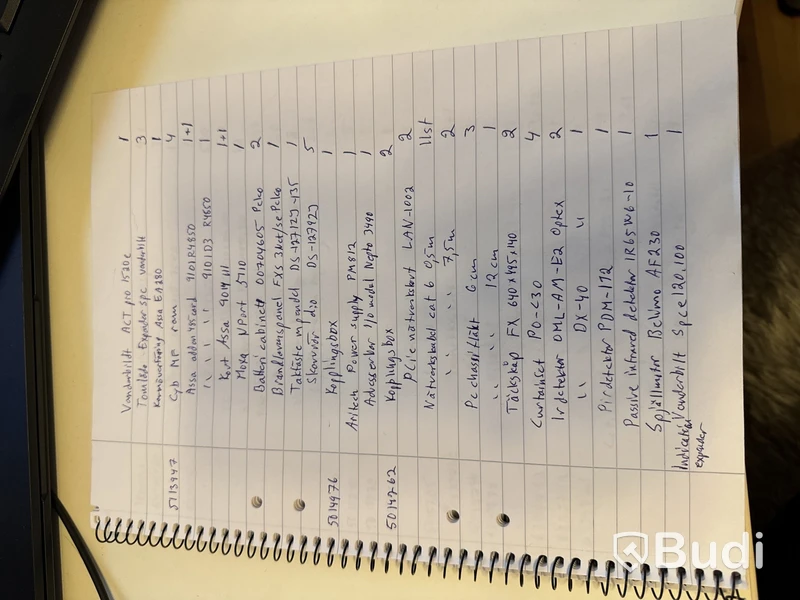 Vanderbildt ACT pro 1520e 1
Tomlåda Expander spc vanderbilt 3
Kannöverföring Assa EA280 1
5713947 Cyb MF ram 4
Assa addon 485 card 9101R4850 1+1
" " " " 9101D3 R4850 1
Kort Assa 9014111 1+1
Moxa NPort 5110 1
Batteri cabinett 00704605 Pcko 2
Brandlarmspanel FXS 3Net/se Pcko 1
Takfäste m pendel DS-1271ZJ-135 1
Skarvrör dio DS-1279ZJ 5
5014976 Kopplingsbox 1
Aritech Power supply PM812 1
Adresserbar I/O modul Nepto 3490 1
5014262 Kopplingsbox 2
PCIe nätverkskort LAN-1002 2
Nätverkskabel cat 6 0,5m 11st
" " " 7,5m 2
Pc chassifläkt 6cm 3
" " 12cm 1
Täckskåp FX 640x445x140 2
Curtainset PO-C30 4
Ir detektor OML-AM-E2 Optex 2
" DX-40 " 1
Pir detektor PDM-172 1
Passive infrared detektor IR65W6-10 1
Spjällmotor Belimo AF230 1
Indication Vanderbilt Spce120.100 1
expander
Budi